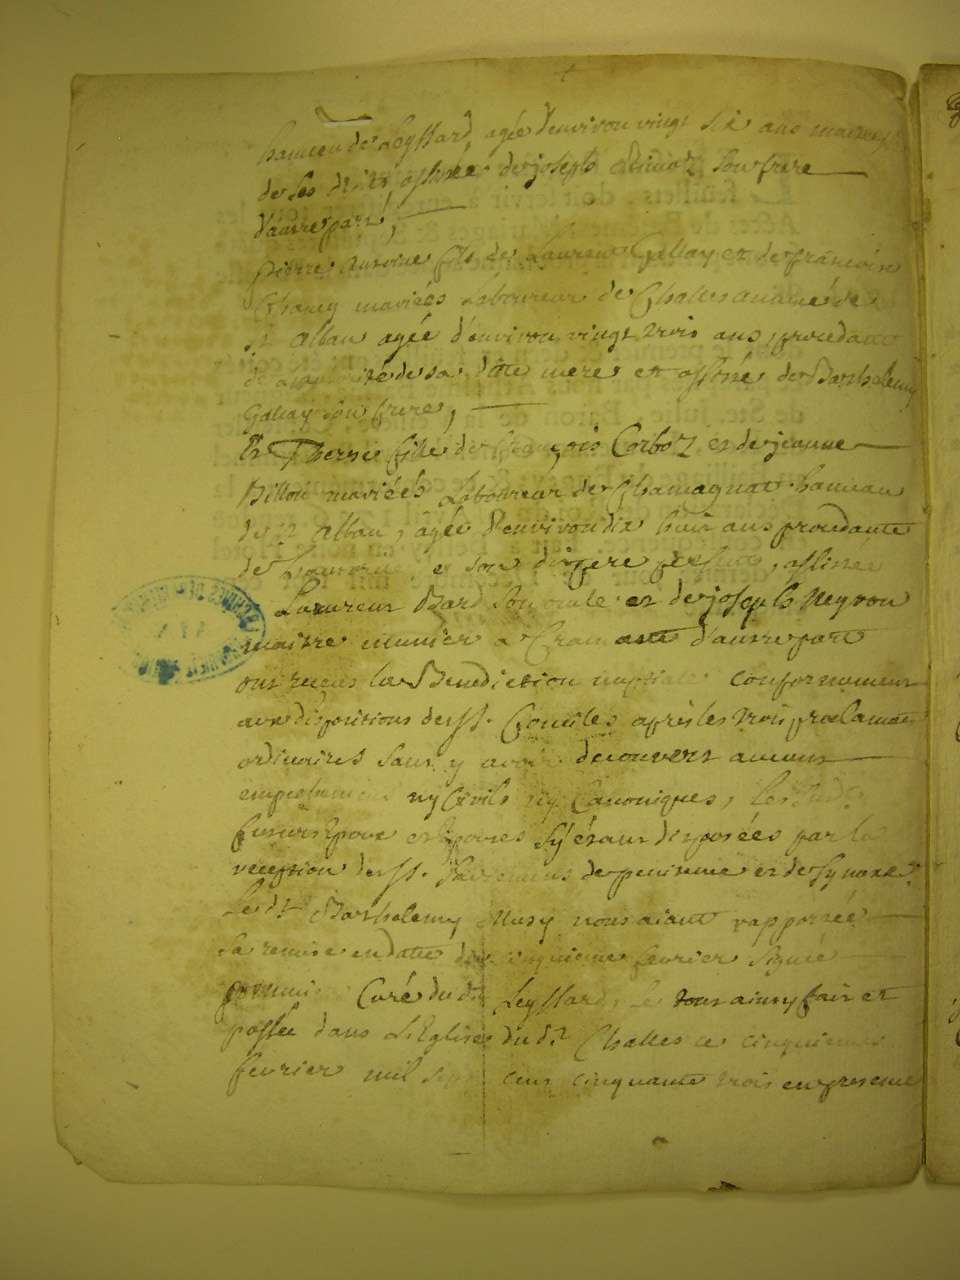 hameau de Leyssard, agée d'environ vingt six ans maitresse
de ses droits, assistée de joseph son frere
d'autre part;
pierre antoine fils de Laurent Galliay et de francoise
Charcy mariées Laboureur de Challes annexé de
st Alban agée d'environ vingt trois ans, procedant
de authorité de sa ditte mere et assisté de Barthelemy
Galliay son frere,
Et Thersie fille de françois Corboz et de jeanne
Billon mariées Laboureur de Chamagnat hameau
de st Alban, agée d'environ dix huit ans procedante
de l'authorité et son dit pere, assistée
Laureur Bard son oncle et de joseph Neyron
maitre munier a d'autre part
ont receus la Benediction nuptiale conformement
aux dispositions des SS. Conciles après les trois proclamat
ordinaires sans y avoir decouvert aucuns
empechement ny Civils ny Canoniques, Les sudt
futurs Epoux et Epouses s'y étant disposées par la
reception des SS. Sacremens de penitence et de synaxe.
Le dt Barthelemy Musy nous aiant rapportée
sa remise en datte du cinquieme fevrier signée
Curé du dt Leyssard, Le tout ainsy fait et
passée dans L'Eglise du dt Challes ce cinquieme
fevrier mil sept cent cinquante trois en presence